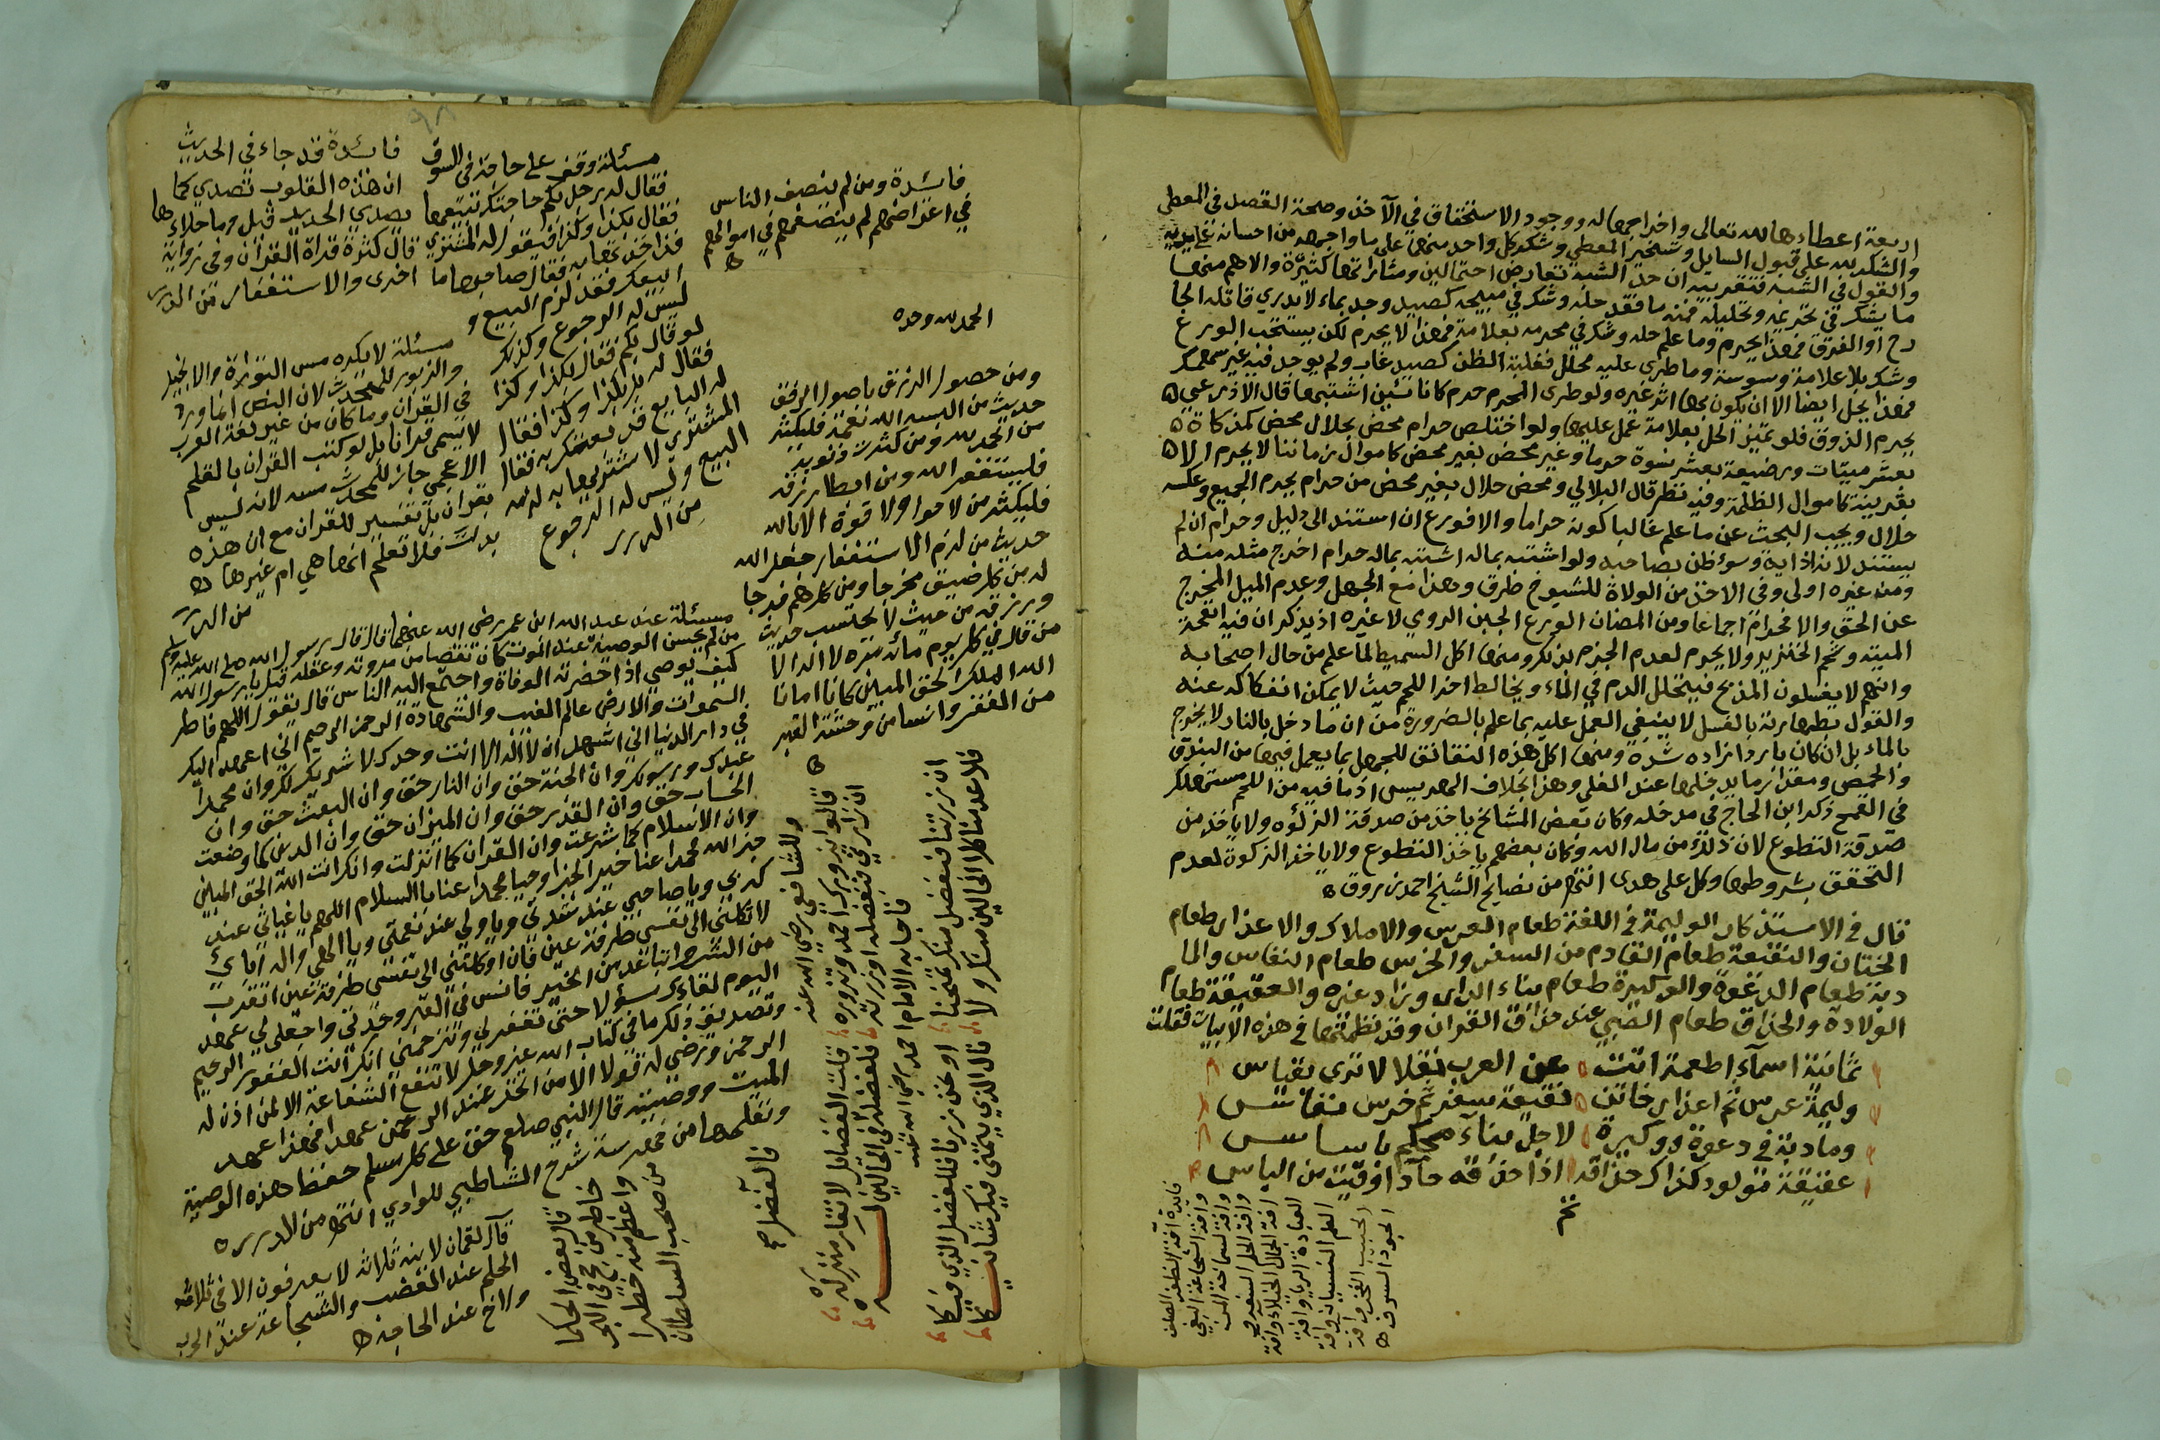 اربعة اعطاءها لله تعالى واخراجها له ووجود الاستحقاق في الآخذ وصحة القصد في المعطي
والشكر لله على قبول السايل وشخير المعطي وشكر كل واحد منهما على ما واجهه من احسان
والقول في الشبه فتقريبه ان حد الشبه تعارض احتمالين ومثاراتها كثيرة والاهم منها
ما يشك في تحريمه وتحليله فمنه ما فقد حله وشك في مبيحه كصيد وجد بماء لا يدري قاتله
او الغرق فهذا يحرم وما علم حله وشك في محرمه بعلامة فهذا لا يحرم لكن يستحب الورع
وشك بلا علامة وسوسة وما طرى عليه محلل فغلبة الظن كصيد غاب ولم يوجد فيه غير سهمك
فهذا يحل ايضا الا ان يكون بها اثر غيره ولو طرى المحرم حرم كانائين اشتبها قال الاذرعي
يحرم الذوق فلو تميز الحل بعلامة عمل عليها ولو اختلص حرام محض بحلال محض كمذكاة
بعشر ميتات ورضيعة بعشر نسوة حرما وغير محض بغير محض كاموال زماننا لا يحرم الا
بقرينة كاموال الظلمة وفيه نظر قال البلالي ومحض حلال بغير محض من حرام يحرم الجميع وعكسه
حلال ويجب البحث عن ما علم غالبا كونه حراما والافورع ان استند الى دليل وحرام ان لم
يستند لانه اذاية وسوء ظن بصاحبه ولو اشتبه بماله حرام اخرج مثله منه
ومن غيره اولى وفي الاخذ من الولاة للشيوخ طرق وهذا مع الجهل وعدم الميل المخرج
عن الحق والا فحرام اجماعا ومن المضان الورع الجبن الرومي لا غيره اذ يذكر ان فيه انفحة
الميتة وشحم الخنزير ولا يحرم لعدم الجزم بذلك ومنها اكل السميط لما علم من حال اصحابه
وانهم لا يغسلون المذبح فيتحلل الدم في الماء ويخالط اجزا اللحم حيث لا يمكن انفكاكه عنه
والقول بطهارته بالغسل لا ينبغي العمل عليه بما علم بالضرورة من ان ما دخل بالنار لا يخرج
بالماء بل ان كان باردا زاده شدة ومنها اكل هذه النقانق للجهل بما يعمل فيها من البندق
والحمص ومعدا زما يدخلها عند المغلي وهذا بخلاف الهريسى اذ ما فيه من اللحم مستهلك
في القمح ذكره ابن الحاج في مدخله وكان بعض المشائخ ياخذ من صدقة الزكوة ولا ياخذ من
صدقة التطوع لان ذلك من مال الله وكان بعضهم ياخذ التطوع ولا ياخذ الزكوة لعدم
التحقق بشروطها وكل على هدى انتهى من نصايح الشيخ احمد زروق
قال في الاستذكار الوليمة في اللغة طعام العرس والاملاك والاعذار طعام
الختان والنقيعة طعام القادم من السفر والخرس طعام النفاس والما
دبة طعام الدعوة والوكيرة طعام بناء الدار وزاد غيره والعقيقة طعام
الولادة والحذاق طعام الصبي عند حذاق القران وقد نظمتها في هذه الابيات فقلت
ثمانية اسماء اطعمة اتت عن العرب نقلا لا ترى بقياس
وليمة عرس ثم اعذار خاتن نقيعة سفر ثم خرس نفاس
ومادبة في دعوة ووكيرة لاجل بناء محكم باساس
عقيقة مولود كذاك حذاقه اذا حذقه
فايدة آفة الظرف الصلف
وافة الشجاعة البغي
وافة السماحة المن
وافة الجمال الخيلاء وافة
العبادة الرياء وافة
العلم النسيان وافة
الحسب الفخر وافة
الجود السرف
فائدة ومن لم ينصف الناس
في اعراضهم لم ينصفهم في اموالهم
الحمد لله وحده
ومن حصول الرزق باصول الرفق
حديث من البسه الله نعمة فليكثر
من الحمد لله ومن كثرت ذنوبه
فليستغفر الله ومن ابطا رزقه
فليكثر من لا حول ولا قوة الا بالله
حديث من لزم الاستغفار جعل الله
له من كل ضيق مخرجا ومن كل هم فرجا
ورزقه من حيث لا يحتسب حديث
من قال في كل يوم مائة مرة لا اله الا
الله الملك الحق المبين كانا امانا
من الفقر وانسا من وحشة القبر
وللشافعي رضي الله عنه
قالوا يزورك احمد وتزوره قلت الفضايل لا تفارق منزله
ان زارني فبفضله او زرته فلفضله فالفضل في الحالين له
فاجابه الامام احمد رضي الله عنه
ان زرتنا فبفضل منك تمنحنا او نحن زرنا فللفضل الذي فيكا
فلا عدمنا كلا الحالين منك ولا نال الذي يتمنى فيك شانيكا
مسئلة وقف على حاجة في السوق
فقال لرجل بكم حاجتك تبيعها
فقال بكذا وكذا فيقول له المشتري
قد اخذتها به فقال صاحبها ما
ابيعك فقد لزم البيع و
ليس له الرجوع وكذلك
لو قال بكم فقال بكذا وكذا
فقال له بل بكذا وكذا فقال
له البايع قد بعتكه به فقال
المشتري لا اشتريها به لزمه
البيع وليس له الرجوع
من الدرر
فائدة قد جاء في الحديث
ان هذه القلوب تصدي كما
يصدي الحديد قيل وما جلاءها
قال كثرة قراة القران وفي رواية
اخرى والاستغفار من الدرر
مسئلة لا يكره مس التوراة والانجيل
والزبور للمحدث لان النص انما ورد
في القران وما كان من غير لغة العرب
لا يسمى قرانا بل لو كتب القران بالقلم
الاعجمي جاز للمحدث مسه لانه ليس
بقران بل تفسير للقران مع ان هذه
بدلت فلا تعلم انها هي ام غيرها
من الدرر
مسئلة عن عبد الله ابن عمر رضي الله عنهما قال قال رسول الله صلى الله عليه وسلم
من لم يحسن الوصية عند الموت كان نقصا من مروته وعقله قيل يا رسول الله
كيف يوصي اذا حضرته الوفاة واجتمع اليه الناس قال يقول اللهم فاطر
السموات والارض عالم الغيب والشهادة الرحمن الرحيم اني اعهد اليك
في دار الدنيا اني اشهد ان لا اله الا انت وحدك لا شريك لك وان محمدا
عبدك ورسولك وان الجنة حق وان النار حق وان البعث حق وان
الحساب حق وان القدر حق وان الميزان حق وان الدين كما وضعت
وان الاسلام كما شرعت وان القران كما انزلت وانك انت الله الحق المبين
جزا الله محمدا عنا خير الجزا وحيا محمدا عنا بالسلام اللهم يا غياثي عند
كربي ويا صاحبي عند شدتي ويا ولي عند نعمتي ويا الهي واله آباي
لا تكلني الى نفسي طرفة عين فان اوكلتني الى نفسي طرفة عين اقترب
من الشر واتباعد من الخير فانس في القبر وحدتي واجعل لي عهدا
اليوم القاك مسؤلا حتى تغفر لي وترحمني انك انت الغفور الرحيم
وتصديق ذلك ما في كتاب الله عز وجل لا تنفع الشفاعة الا لمن اذن له
الرحمن ورضي له قولا الا من اتخذ عند الرحمن عهدا فهذا عهد
الميت ووصيته قال النبي صلعم حق على كل مسلم حفظ هذه الوصية
وتعلمها من شرح الشاطبي للوادي انتهى من الدرر
قال لقمان لابنه ثلاثة لا يعرفون الا في ثلاثة
الحلم عند الغضب والشجاعة عند الحرب
والاخ عند الحاجة
قال بعض الحكما
خاطر من لج في البحر
واعظم منه خطرا
من صحب السلطان